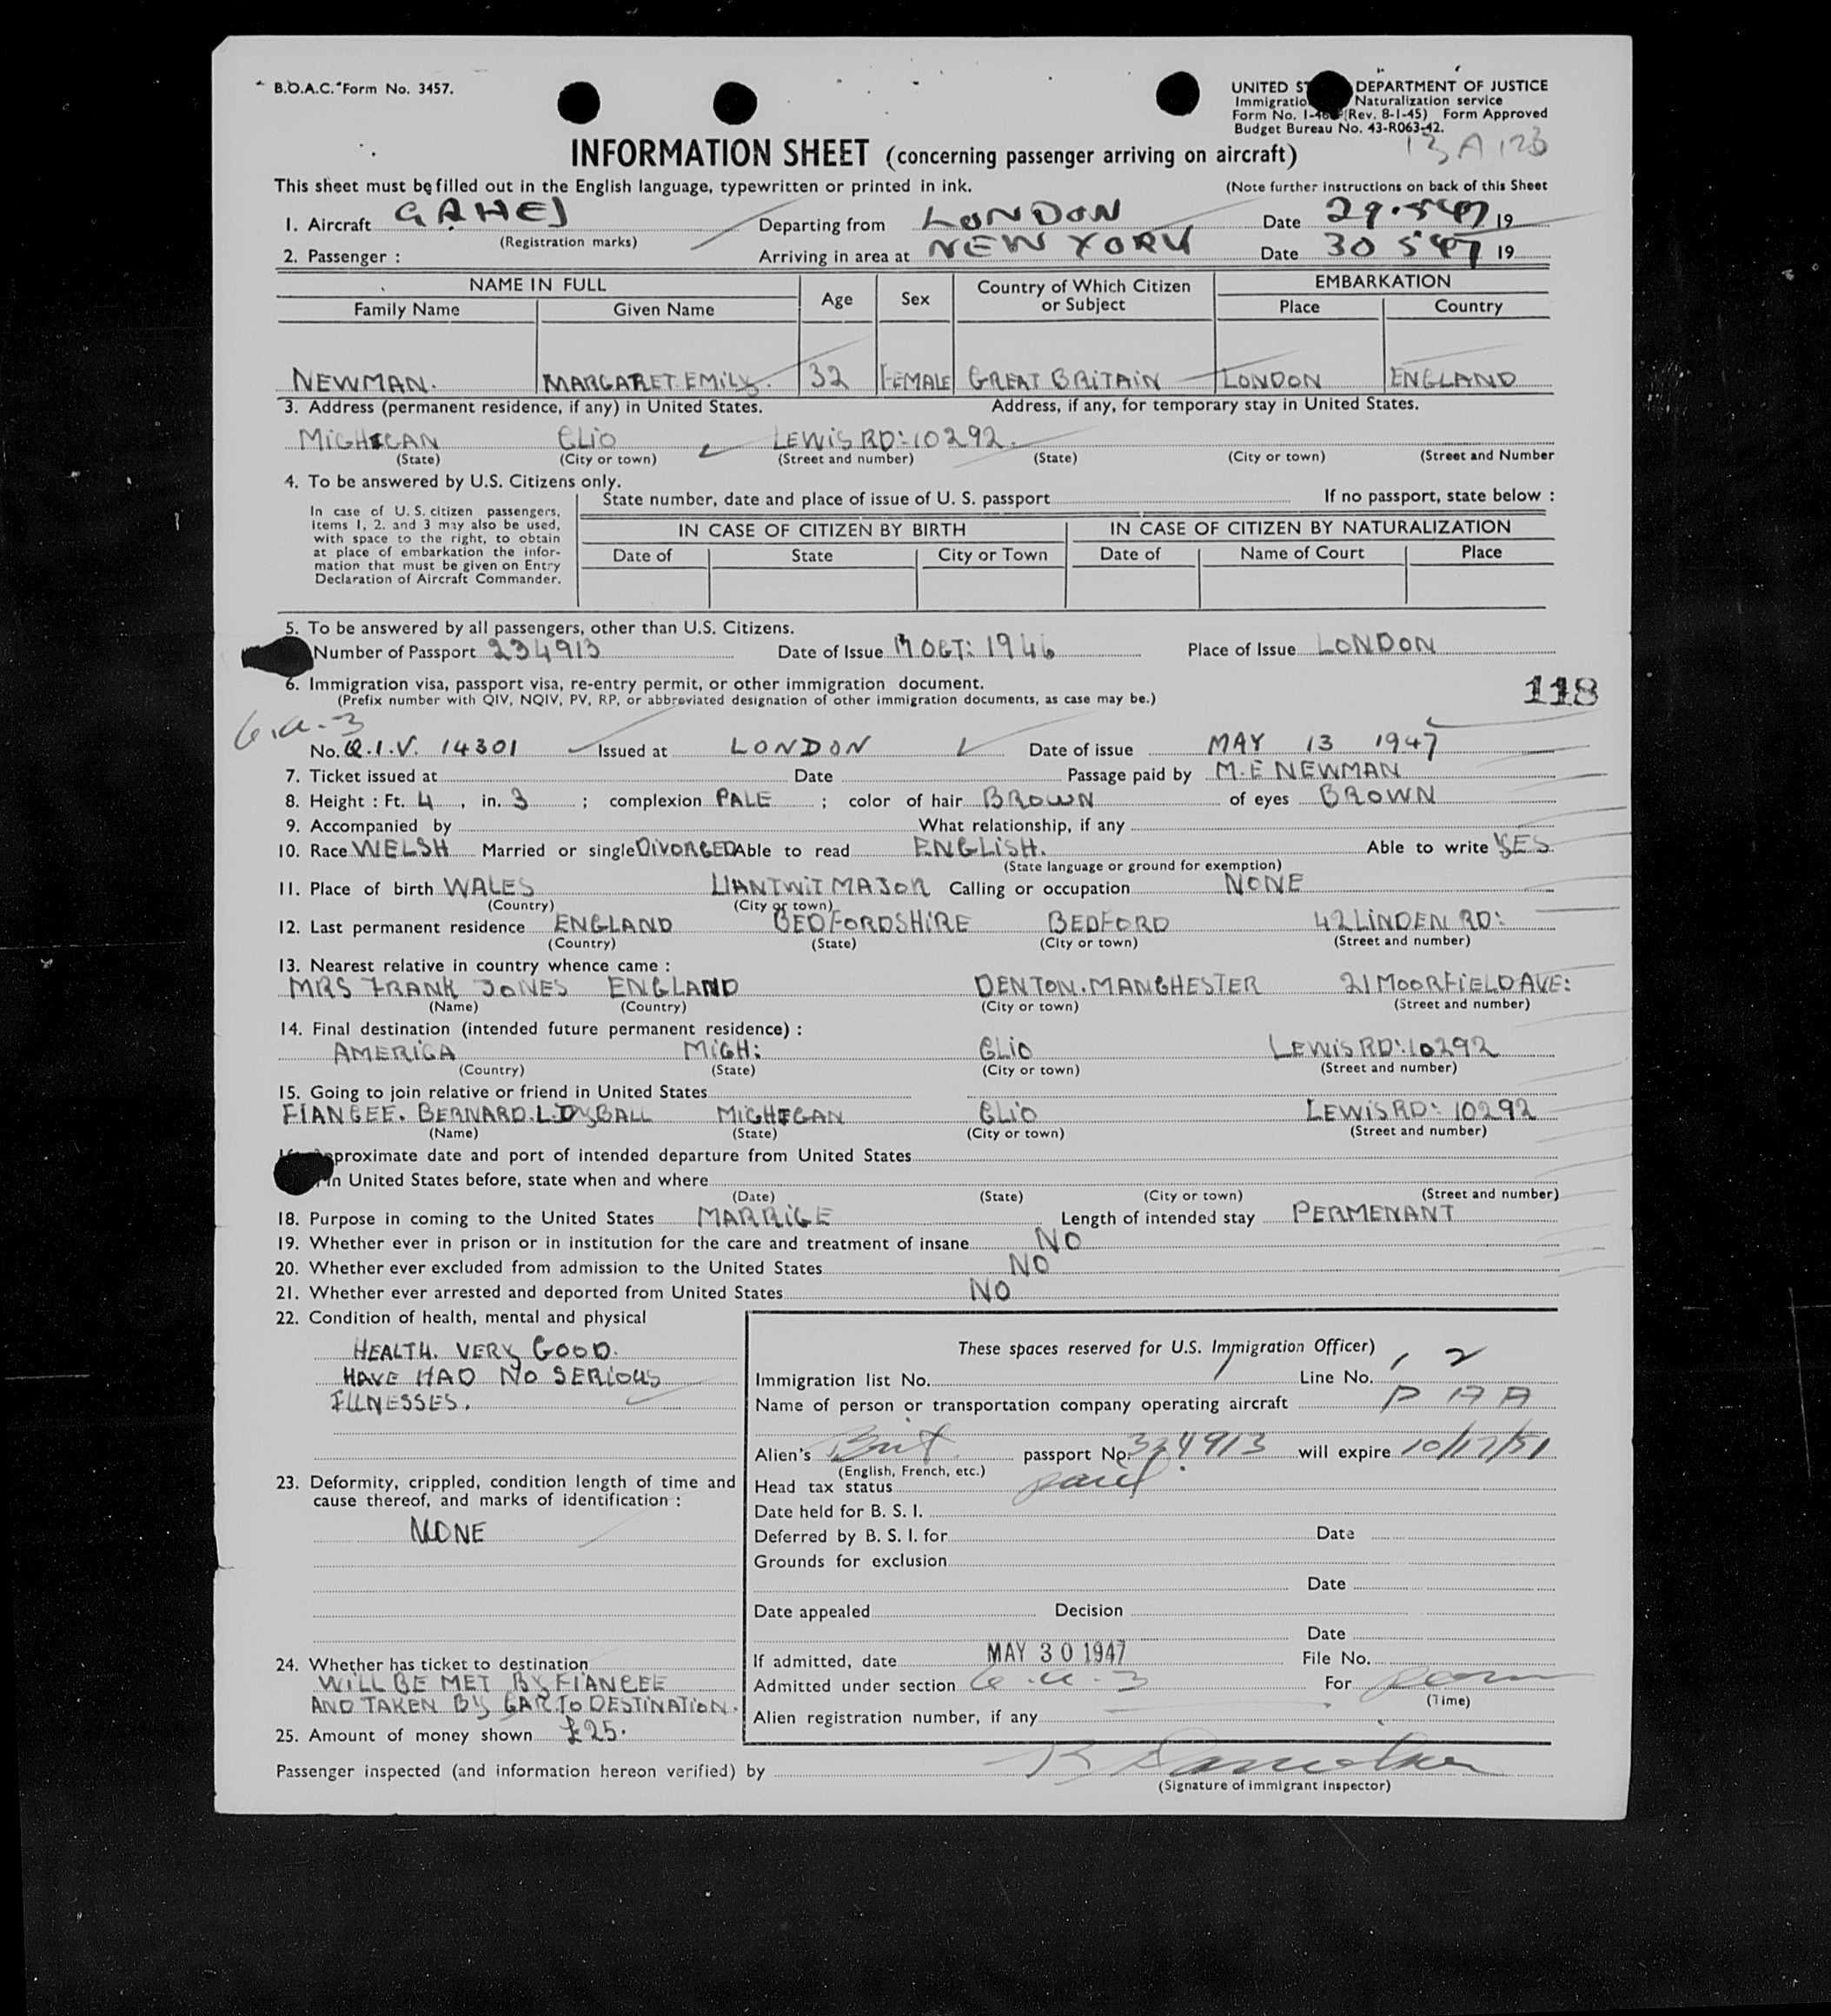 B.O.A.C. Form No. 3457.
UNITED ST DEPARTMENT OF JUSTICE
Immigratio Naturalization service
Form No. I-46 (Rev. 8-1-45) Form Approved
Budget Bureau No. 43-R063-42.
13 A 123
INFORMATION SHEET (concerning passenger arriving on aircraft)
This sheet must be filled out in the English language, typewritten or printed in ink. (Note further instructions on back of this Sheet
1. Aircraft GAHEJ Departing from LONDON Date 29.5.47 19
(Registration marks)
2. Passenger : Arriving in area at NEW YORK Date 30 5 47 19
NAME IN FULL Age Sex Country of Which Citizen or Subject EMBARKATION
Family Name Given Name Place Country
NEWMAN. MARGARET EMILY. 32 FEMALE GREAT BRITAIN LONDON ENGLAND
3. Address (permanent residence, if any) in United States. Address, if any, for temporary stay in United States.
MICHIGAN CLIO LEWIS RD: 10292.
(State) (City or town) (Street and number) (State) (City or town) (Street and Number
4. To be answered by U.S. Citizens only.
State number, date and place of issue of U. S. passport If no passport, state below :
In case of U. S. citizen passengers,
items 1, 2. and 3 may also be used,
with space to the right, to obtain
at place of embarkation the infor-
mation that must be given on Entry
Declaration of Aircraft Commander.
IN CASE OF CITIZEN BY BIRTH IN CASE OF CITIZEN BY NATURALIZATION
Date of State City or Town Date of Name of Court Place
5. To be answered by all passengers, other than U.S. Citizens.
Number of Passport 234913 Date of Issue 17 OCT: 1946 Place of Issue LONDON
6. Immigration visa, passport visa, re-entry permit, or other immigration document.
(Prefix number with QIV, NQIV, PV, RP, or abbreviated designation of other immigration documents, as case may be.)
118
6.a-3
No. Q.I.V. 14301 Issued at LONDON Date of issue MAY 13 1947
7. Ticket issued at Date Passage paid by M.E NEWMAN
8. Height : Ft. 4 , in. 3 ; complexion PALE ; color of hair BROWN of eyes BROWN
9. Accompanied by What relationship, if any
10. Race WELSH Married or single DIVORCED Able to read ENGLISH. Able to write YES
(State language or ground for exemption)
11. Place of birth WALES LLANTWIT MAJOR Calling or occupation NONE
(Country) (City or town)
12. Last permanent residence ENGLAND BEDFORDSHIRE BEDFORD 42 LINDEN RD:
(Country) (State) (City or town) (Street and number)
13. Nearest relative in country whence came :
MRS FRANK JONES ENGLAND DENTON. MANCHESTER 21 MOORFIELD AVE:
(Name) (Country) (City or town) (Street and number)
14. Final destination (intended future permanent residence) :
AMERICA MICH: CLIO LEWIS RD: 10292
(Country) (State) (City or town) (Street and number)
15. Going to join relative or friend in United States
FIANCEE. BERNARD. L. DYBALL MICHIGAN CLIO LEWIS RD: 10292
(Name) (State) (City or town) (Street and number)
pproximate date and port of intended departure from United States
in United States before, state when and where
(Date) (State) (City or town) (Street and number)
18. Purpose in coming to the United States MARRIGE Length of intended stay PERMENANT
19. Whether ever in prison or in institution for the care and treatment of insane NO
20. Whether ever excluded from admission to the United States NO
21. Whether ever arrested and deported from United States NO
22. Condition of health, mental and physical
HEALTH. VERY GOOD.
HAVE HAD NO SERIOUS
ILLNESSES.
23. Deformity, crippled, condition length of time and
cause thereof, and marks of identification :
NONE
24. Whether has ticket to destination
WILL BE MET BY FIANCEE
AND TAKEN BY CAR. TO DESTINATION.
25. Amount of money shown £25.
These spaces reserved for U.S. Immigration Officer)
Immigration list No. 1 Line No. 2
Name of person or transportation company operating aircraft P A A
Alien's Brit passport No. 334913 will expire 10/17/51
(English, French, etc.)
Head tax status paid
Date held for B. S. I.
Deferred by B. S. I. for Date
Grounds for exclusion
Date
Date appealed Decision
Date
If admitted, date MAY 30 1947 File No.
Admitted under section 6.a-3 For perm
(Time)
Alien registration number, if any
Passenger inspected (and information hereon verified) by
(Signature of immigrant inspector)